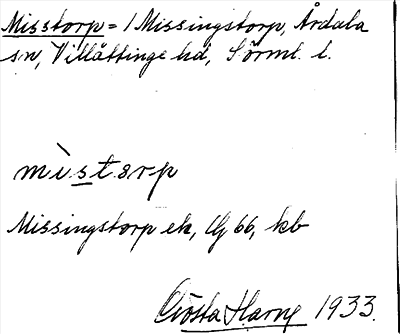 Misstorp = / Missingstorp, Årdala
sn, Villåttinge hd, Sörml. l.
mìstorp
Missingstorp ek, Uj 66, kb
Gösta Harng 1933.